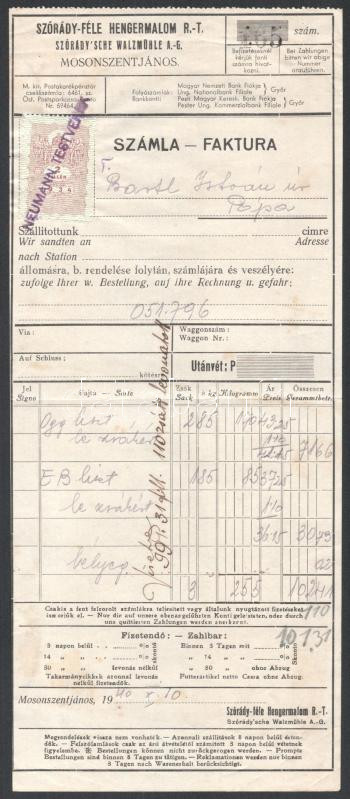 SZÓRÁDY-FÉLE HENGERMALOM R.-T.
SZÓRÁDY'SCHE WALZMÜHLE A.-G.
MOSONSZENTJÁNOS.
szám.
Befizetésénél kérjük fenti számra hivatkozni.
Bei Zahlungen bitten wir obige Nummer anzuführen.
M. kir. Postatakarékpénztár
csekkszámla: 6461. sz.
Öst. Postsparkassen-Konto
Nr. 57464
Folyószámláink:
Bankkonti:
Magyar Nemzeti Bank Fiókja
Ung. Nationalbank Filiale
Győr
Pesti Magyar Keresk. Bank Fiókja
Pester Ung. Kommerzialbank Filiale
Győr
NEUMANN TESTVÉREK
SZÁMLA — FAKTURA
T.
Bartl István úr
Pápa
Szállítottunk címre
Wir sandten an Adresse
nach Station
állomásra, b. rendelése folytán, számlájára és veszélyére:
zufolge Ihrer w. Bestellung, auf ihre Rechnung u. gefahr:
051.796
Via:
Waggonszám:
Waggon Nr.:
Auf Schluss:
kötésre
Utánvét: P
Jel
Signo
Fajta — Sorte
Zsák
Sack
à kg
Kilogramm
Ár
Preis
Összesen
Gesammtbetr.
Ogg liszt 2 85 170 43.25
le 1.10
42.15 71.66
EB liszt 1 85 85 37.25
le 1.10
36.15 30.73
bélyeg 02
3 255 102.41
1.10
101.31
Csakis a fent felsorolt számlákra teljesített vagy általunk nyugtázott fizetéseket ismerjük el. — Nur die auf unsere obenangeführten Konti geleisteten, oder durch uns quittierten Zahlungen werden anerkannt.
Fizetendő: — Zahlbar:
3 napon belül % Skontó
14 „ „ %
30 „ „ levonás nélkül
Takarmánycikkek azonnal levonás nélkül fizetendők.
Binnen 3 Tagen mit % Skonto
„ 14 „ „ %
„ 30 „ ohne Abzug
Futterartikel netto Cassa ohne Abzug.
Mosonszentjános, 1940 X 10
Szórády-féle Hengermalom R.-T.
Szórády'sche Walzmühle A.-G.
Megrendelések vissza nem vonhatók. — Azonnali szállítások 8 napon belül értendők. — Felszólamlások csak az árú átvételétől számított 3 napon belül vétetnek figyelembe. Bestellungen können nicht zurückgezogen werden. — Prompte Bestellungen sind binnen 8 Tagen zu tätigen. — Reklamationen werden nur binnen 3 Tagen nach Warenerhalt berücksichtigt.